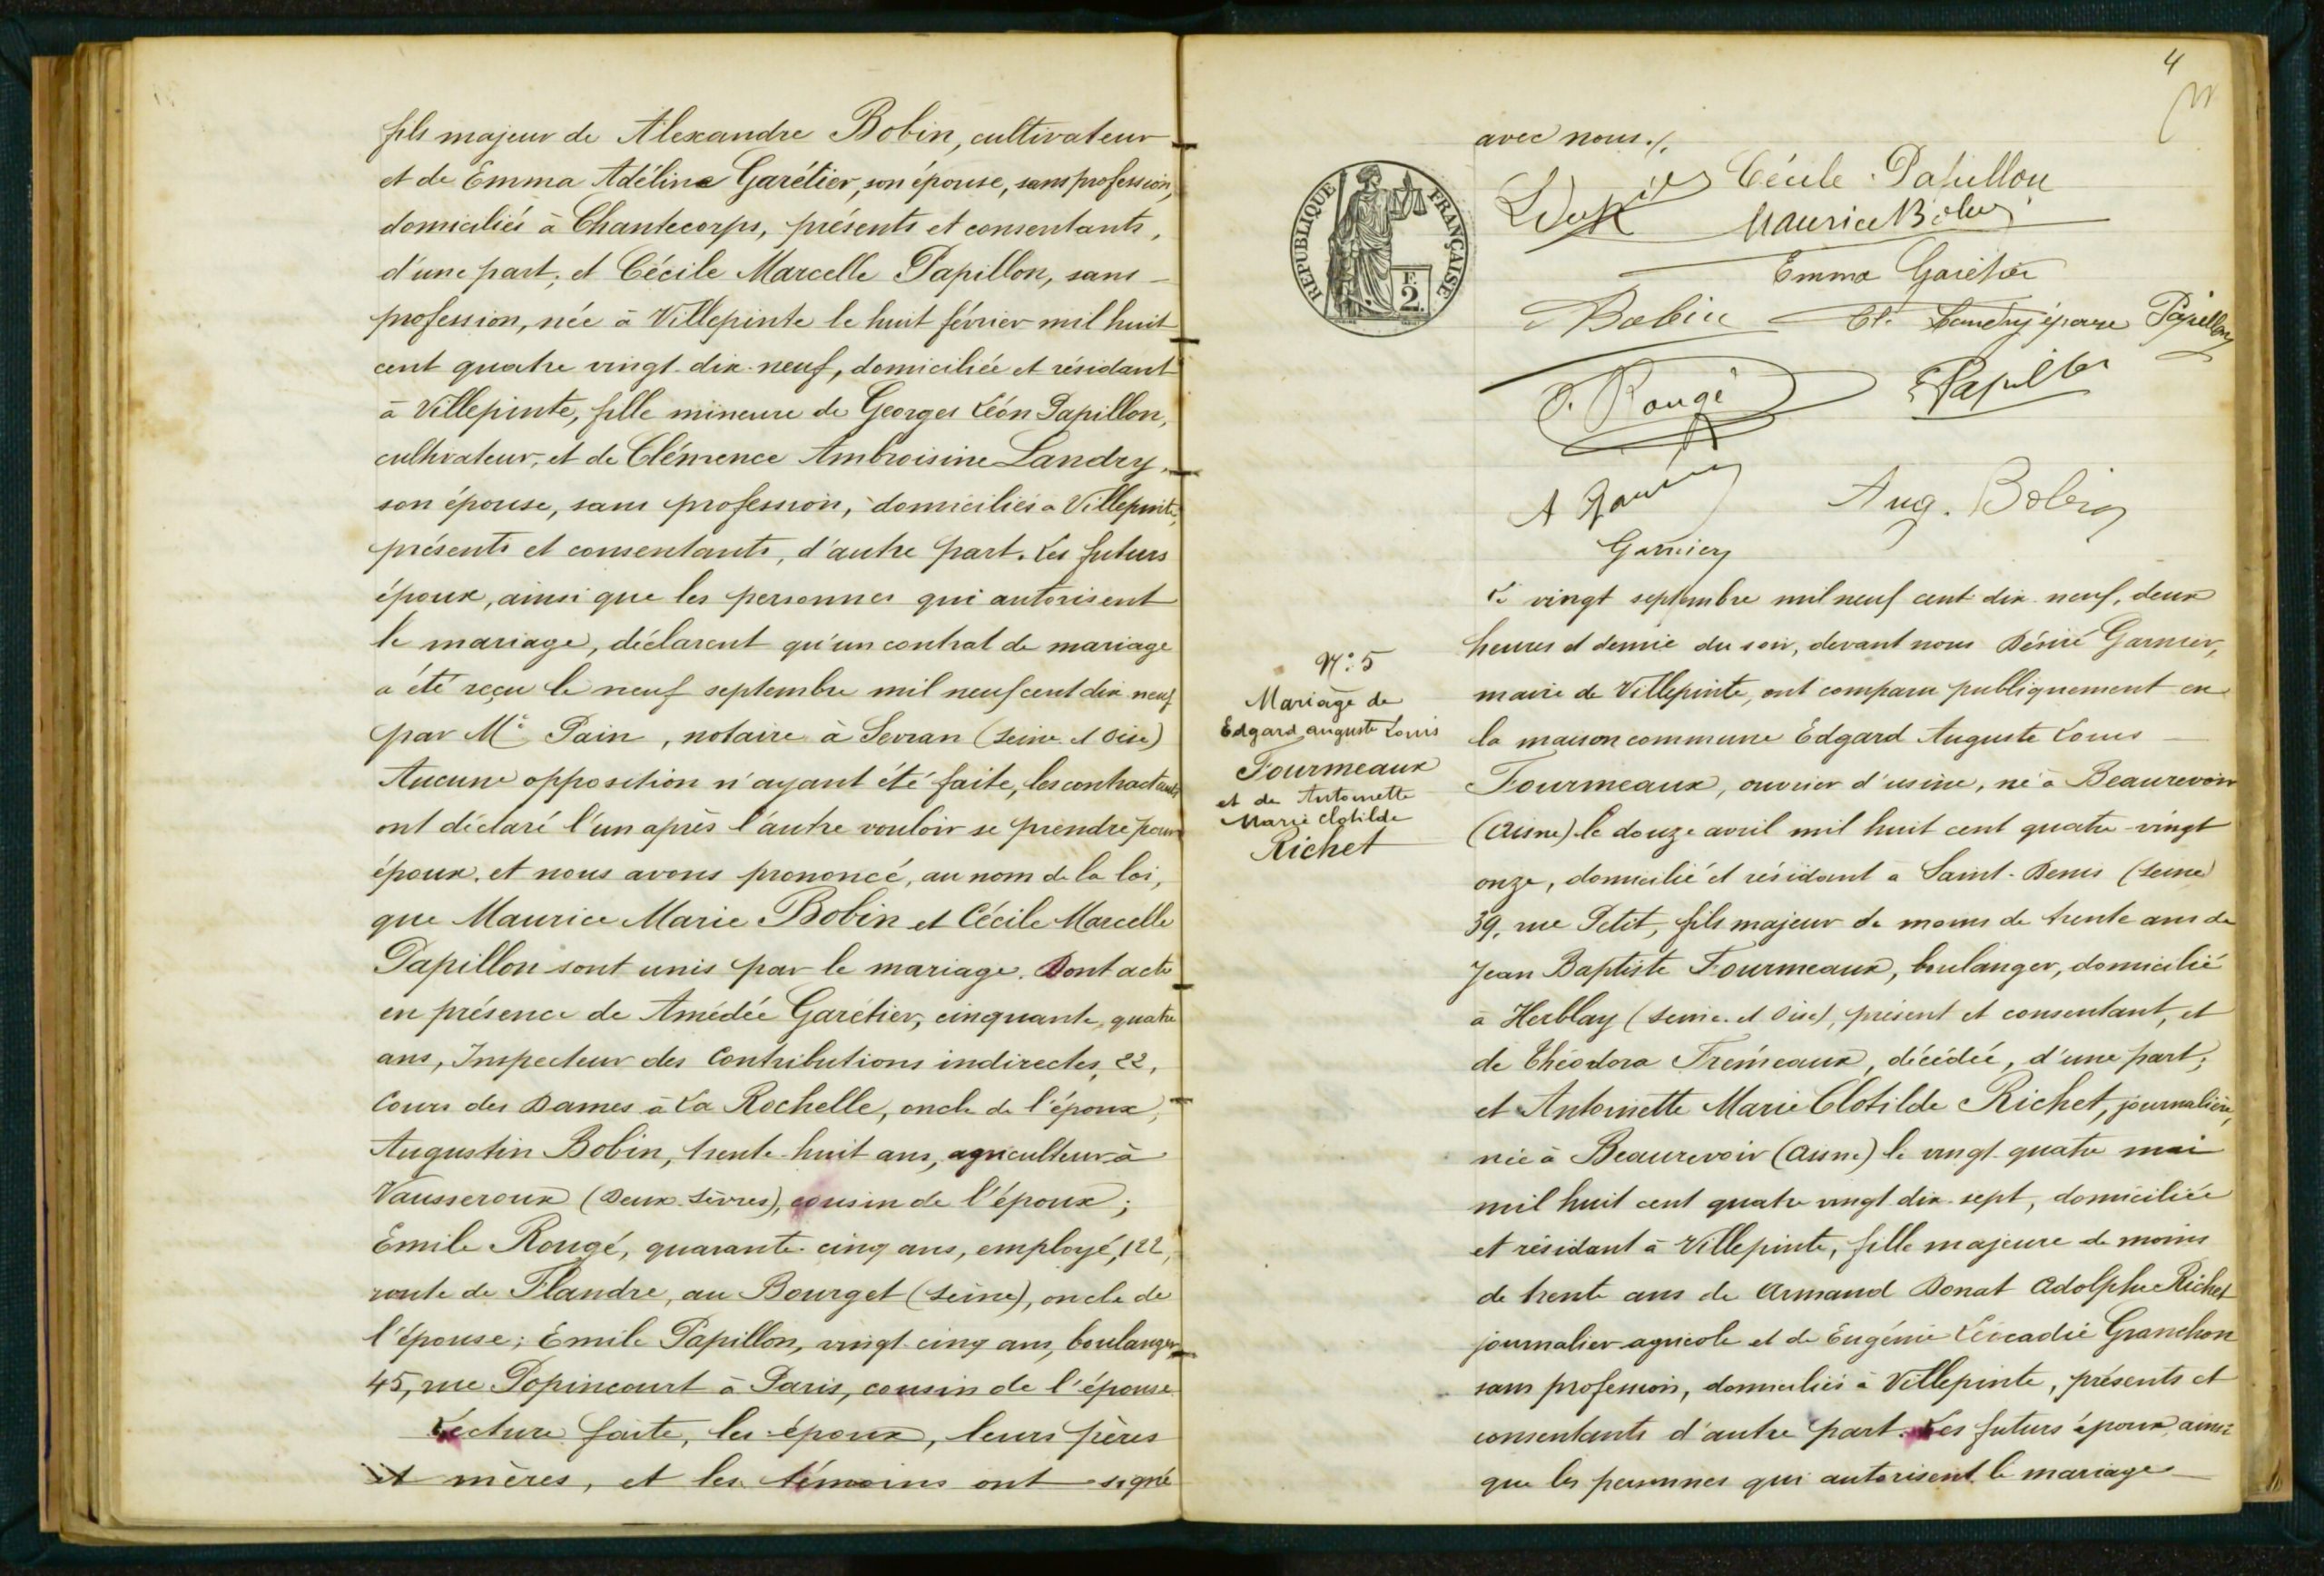 fils majeur de Alexandre Bobin, cultivateur
et de Emma Adéline Garétier, son épouse, sans profession,
domiciliés à Chantecorps, présents et consentants,
d'une part; et Cécile Marcelle Papillon, sans
profession, née à Villepinte le huit février mil huit
cent quatre vingt dix-neuf, domiciliée et résidant
à Villepinte, fille mineure de Georges Léon Papillon,
cultivateur, et de Clémence Ambroisine Landry,
son épouse, sans profession, domiciliés à Villepinte,
présents et consentants, d'autre part. Les futurs
époux, ainsi que les personnes qui autorisent
le mariage, déclarent qu'un contrat de mariage
a été reçu le neuf septembre mil neuf cent dix neuf
par Me Pain, notaire à Sevran (Seine et Oise)
Aucune opposition n'ayant été faite, les contractants
ont déclaré l'un après l'autre vouloir se prendre pour
époux, et nous avons prononcé, au nom de la loi,
que Maurice Marie Bobin et Cécile Marcelle
Papillon sont unis par le mariage. Dont acte
en présence de Amédée Garétier, cinquante quatre
ans, Inspecteur des Contributions indirectes, 22,
Cours des Dames à La Rochelle, oncle de l'époux,
Augustin Bobin, trente-huit ans, agriculteur à
Vausseroux (Deux-Sèvres), cousin de l'époux;
Emile Rougé, quarante-cinq ans, employé, 122,
route de Flandre, au Bourget (Seine), oncle de
l'épouse; Emile Papillon, vingt-cinq ans, boulanger,
45, rue Popincourt à Paris, cousin de l'épouse.
Lecture faite, les époux, leurs pères
et mères, et les témoins ont signé
4
avec nous./.
REPUBLIQUE FRANÇAISE
F. 2
Cécile Papillon
Maurice Bobin
Emma Garétier
Bobin Cl. Landry épouse Papillon
E. Rougé E Papillon
Aug. Bobin
Garnier
Le vingt septembre mil neuf cent dix neuf, deux
heures et demie du soir, devant nous Désiré Garnier,
maire de Villepinte, ont comparu publiquement en
la maison commune Edgard Auguste Louis
Fourmeaux, ouvrier d'usine, né à Beaurevoir
(Aisne) le douze avril mil huit cent quatre-vingt
onze, domicilié et résidant à Saint-Denis (Seine)
39, rue Petit, fils majeur de moins de trente ans de
Jean Baptiste Fourmeaux, boulanger, domicilié
à Herblay (Seine et Oise), présent et consentant, et
de Théodora Fréméaux, décédée, d'une part;
et Antoinette Marie Clotilde Richet, journalière,
née à Beaurevoir (Aisne) le vingt-quatre mai
mil huit cent quatre vingt dix-sept, domiciliée
et résidant à Villepinte, fille majeure de moins
de trente ans de Armand Donat Adolphe Richet
journalier agricole et de Eugénie Léocadie Granchon
sans profession, domiciliés à Villepinte, présents et
consentants d'autre part. Les futurs époux, ainsi
que les personnes qui autorisent le mariage
N° 5
Mariage de
Edgard Auguste Louis
Fourmeaux
et de Antoinette
Marie Clotilde
Richet